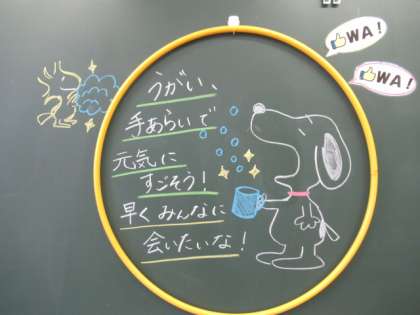 うがい、
手あらいで
元気に
すごそう！
早くみんなに
会いたいな！
WA！
WA！